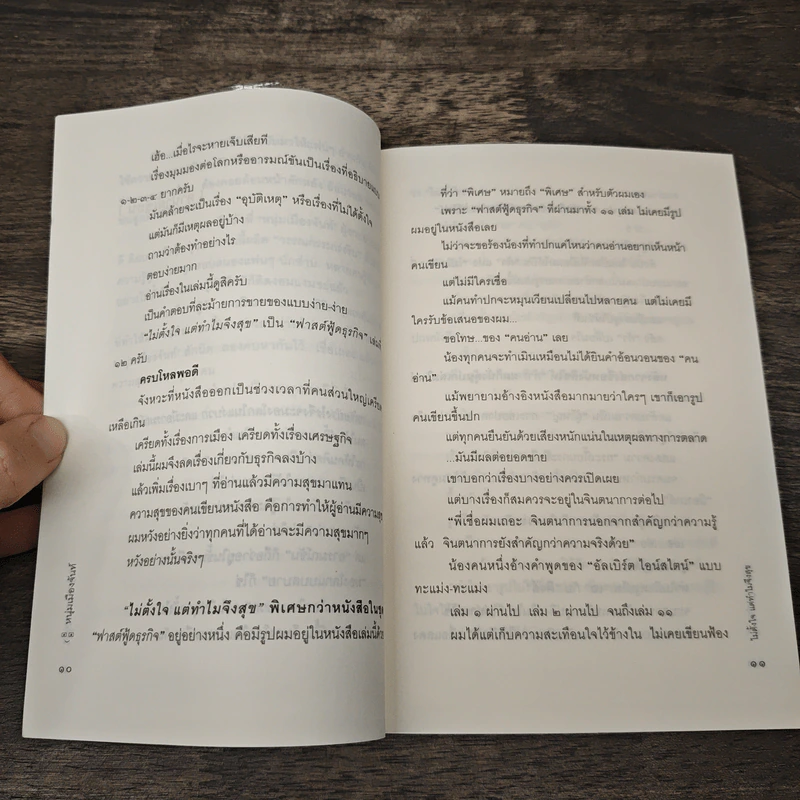 เฮ้อ...เมื่อไรจะหายเจ็บเสียที
เรื่องมุมมองต่อโลกหรืออารมณ์ขันเป็นเรื่องที่อธิบายแบบ
๑-๒-๓-๔ ยากครับ
มันคล้ายจะเป็นเรื่อง "อุบัติเหตุ" หรือเรื่องที่ไม่ได้ตั้งใจ
แต่มันก็มีเหตุผลอยู่บ้าง
ถามว่าต้องทำอย่างไร
ตอบง่ายมาก
อ่านเรื่องในเล่มนี้ดูสิครับ
เป็นคำตอบที่ละม้ายการขายของแบบง่าย-ง่าย
"ไม่ตั้งใจ แต่ทำไมจึงสุข" เป็น "ฟาสต์ฟู้ดธุรกิจ"
๑๒ ครับ
ครบโหลพอดี
จังหวะที่หนังสือออกเป็นช่วงเวลาที่คนส่วนใหญ่เครียด
เหลือเกิน
เครียดทั้งเรื่องการเมือง เครียดทั้งเรื่องเศรษฐกิจ
เล่มนี้ผมจึงลดเรื่องเกี่ยวกับธุรกิจลงบ้าง
แล้วเพิ่มเรื่องเบาๆ ที่อ่านแล้วมีความสุขมาแทน
ความสุขของคนเขียนหนังสือ คือการทำให้ผู้อ่านมีความสุข
ผมหวังอย่างยิ่งว่าทุกคนที่ได้อ่านจะมีความสุขมากๆ
หวังอย่างนั้นจริงๆ
"ไม่ตั้งใจ แต่ทำไมจึงสุข" พิเศษกว่าหนังสือในชุด
"ฟาสต์ฟู้ดธุรกิจ" อยู่อย่างหนึ่ง คือมีรูปผมอยู่ในหนังสือเล่มนี้ด้วย
หนุ่มเมืองจันท์
๑๐
ที่ว่า "พิเศษ" หมายถึง "พิเศษ" สำหรับตัวผมเอง
เพราะ "ฟาสต์ฟู้ดธุรกิจ" ที่ผ่านมาทั้ง ๑๑ เล่ม ไม่เคยมีรูป
ผมอยู่ในหนังสือเลย
ไม่ว่าจะขอร้องน้องที่ทำปกแค่ไหนว่าคนอ่านอยากเห็นหน้า
คนเขียน
แต่ไม่มีใครเชื่อ
แม้คนทำปกจะหมุนเวียนเปลี่ยนไปหลายคน แต่ไม่เคยมี
ใครรับข้อเสนอของผม...
ขอโทษ...ของ "คนอ่าน" เลย
น้องทุกคนจะทำเมินเหมือนไม่ได้ยินคำอ้อนวอนของ "คน
อ่าน"
แม้พยายามอ้างอิงหนังสือมากมายว่าใครๆ เขาก็เอารูป
คนเขียนขึ้นปก
แต่ทุกคนยืนยันด้วยเสียงหนักแน่นในเหตุผลทางการตลาด
...มันมีผลต่อยอดขาย
เขาบอกว่าเรื่องบางอย่างควรเปิดเผย
แต่บางเรื่องก็สมควรจะอยู่ในจินตนาการต่อไป
"พี่เชื่อผมเถอะ จินตนาการนอกจากสำคัญกว่าความรู้
แล้ว จินตนาการยังสำคัญกว่าความจริงด้วย"
น้องคนหนึ่งอ้างคำพูดของ "อัลเบิร์ต ไอน์สไตน์" แบบ
ทะแม่ง-ทะแม่ง
เล่ม ๑ ผ่านไป เล่ม ๒ ผ่านไป จนถึงเล่ม ๑๑
ผมได้แต่เก็บความสะเทือนใจไว้ข้างใน ไม่เคยเขียนฟ้อง
ไม่ตั้งใจ แต่ทำไมจึงสุข
๑๑